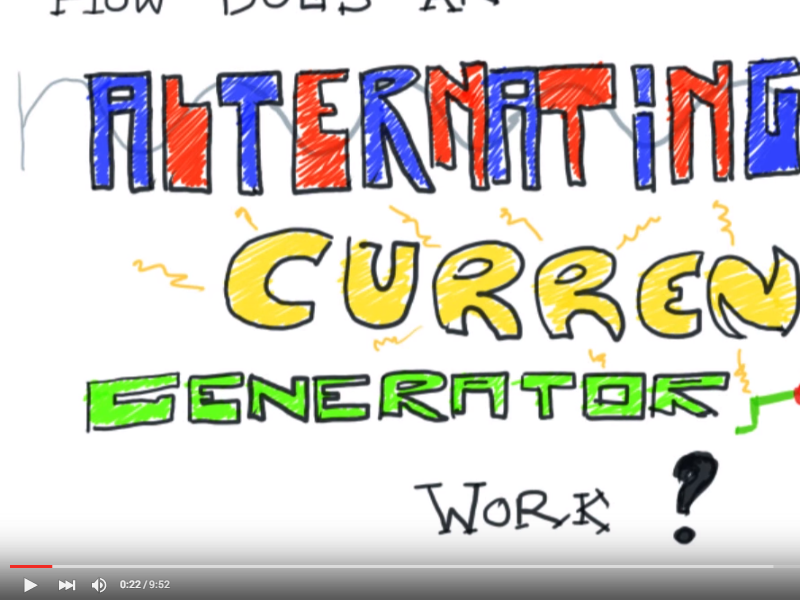 HOW DOES AN
ALTERNATiNG
CURREN
GENERATOR
WORK ?
0:22 / 9:52